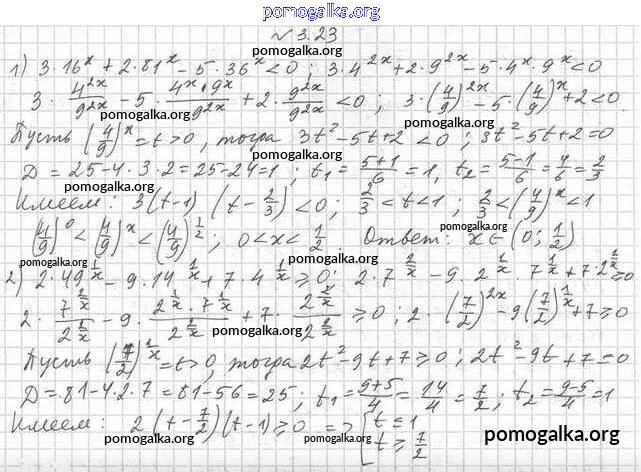 pomogalka.org
№ 3.23
pomogalka.org
1) 3·16^x + 2·81^x − 5·36^x < 0 ; 3·4^{2x} + 2·9^{2x} − 5·4^x·9^x < 0
3·\frac{4^{2x}}{9^{2x}} − 5·\frac{4^x·9^x}{9^{2x}} + 2·\frac{9^{2x}}{9^{2x}} < 0 ; 3·(\frac{4}{9})^{2x} − 5·(\frac{4}{9})^x + 2 < 0.
pomogalka.org pomogalka.org
Пусть (\frac{4}{9})^x = t > 0, тогда 3t^2 − 5t + 2 < 0 ; 3t^2 − 5t + 2 = 0
pomogalka.org
D = 25 − 4·3·2 = 25 − 24 = 1 ; t_1 = \frac{5+1}{6} = 1, t_2 = \frac{5−1}{6} = \frac{4}{6} = \frac{2}{3}
pomogalka.org pomogalka.org
Имеем: 3(t−1)(t − \frac{2}{3}) < 0 ; \frac{2}{3} < t < 1 ; \frac{2}{3} < (\frac{4}{9})^x < 1
pomogalka.org pomogalka.org
(\frac{4}{9})^0 < (\frac{4}{9})^x < (\frac{4}{9})^{\frac{1}{2}} ; 0 < x < \frac{1}{2}. Ответ: x ∈ (0; \frac{1}{2})
pomogalka.org
2) 2·49^{\frac{1}{x}} − 9·14^{\frac{1}{x}} + 7·4^{\frac{1}{x}} ≥ 0 ; 2·7^{\frac{2}{x}} − 9·2^{\frac{1}{x}}·7^{\frac{1}{x}} + 7·2^{\frac{1}{x}} ≥ 0
pomogalka.org pomogalka.org
2·\frac{7^{\frac{2}{x}}}{2^{\frac{2}{x}}} − 9·\frac{2^{\frac{1}{x}}·7^{\frac{1}{x}}}{2^{\frac{2}{x}}} + 7·\frac{2^{\frac{2}{x}}}{2^{\frac{2}{x}}} ≥ 0 ; 2·(\frac{7}{2})^{2x} − 9(\frac{7}{2})^{\frac{1}{x}} + 7 ≥ 0
pomogalka.org
Пусть (\frac{7}{2})^{\frac{1}{x}} = t > 0, тогда 2t^2 − 9t + 7 ≥ 0 ; 2t^2 − 9t + 7 = 0
pomogalka.org pomogalka.org
D = 81 − 4·2·7 = 81 − 56 = 25 ; t_1 = \frac{9+5}{4} = \frac{14}{4} = \frac{7}{2} ; t_2 = \frac{9−5}{4} = 1
pomogalka.org
Имеем: 2(t − \frac{7}{2})(t − 1) ≥ 0 => [t ≤ 1
t ≥ \frac{7}{2}
pomogalka.org pomogalka.org pomogalka.org